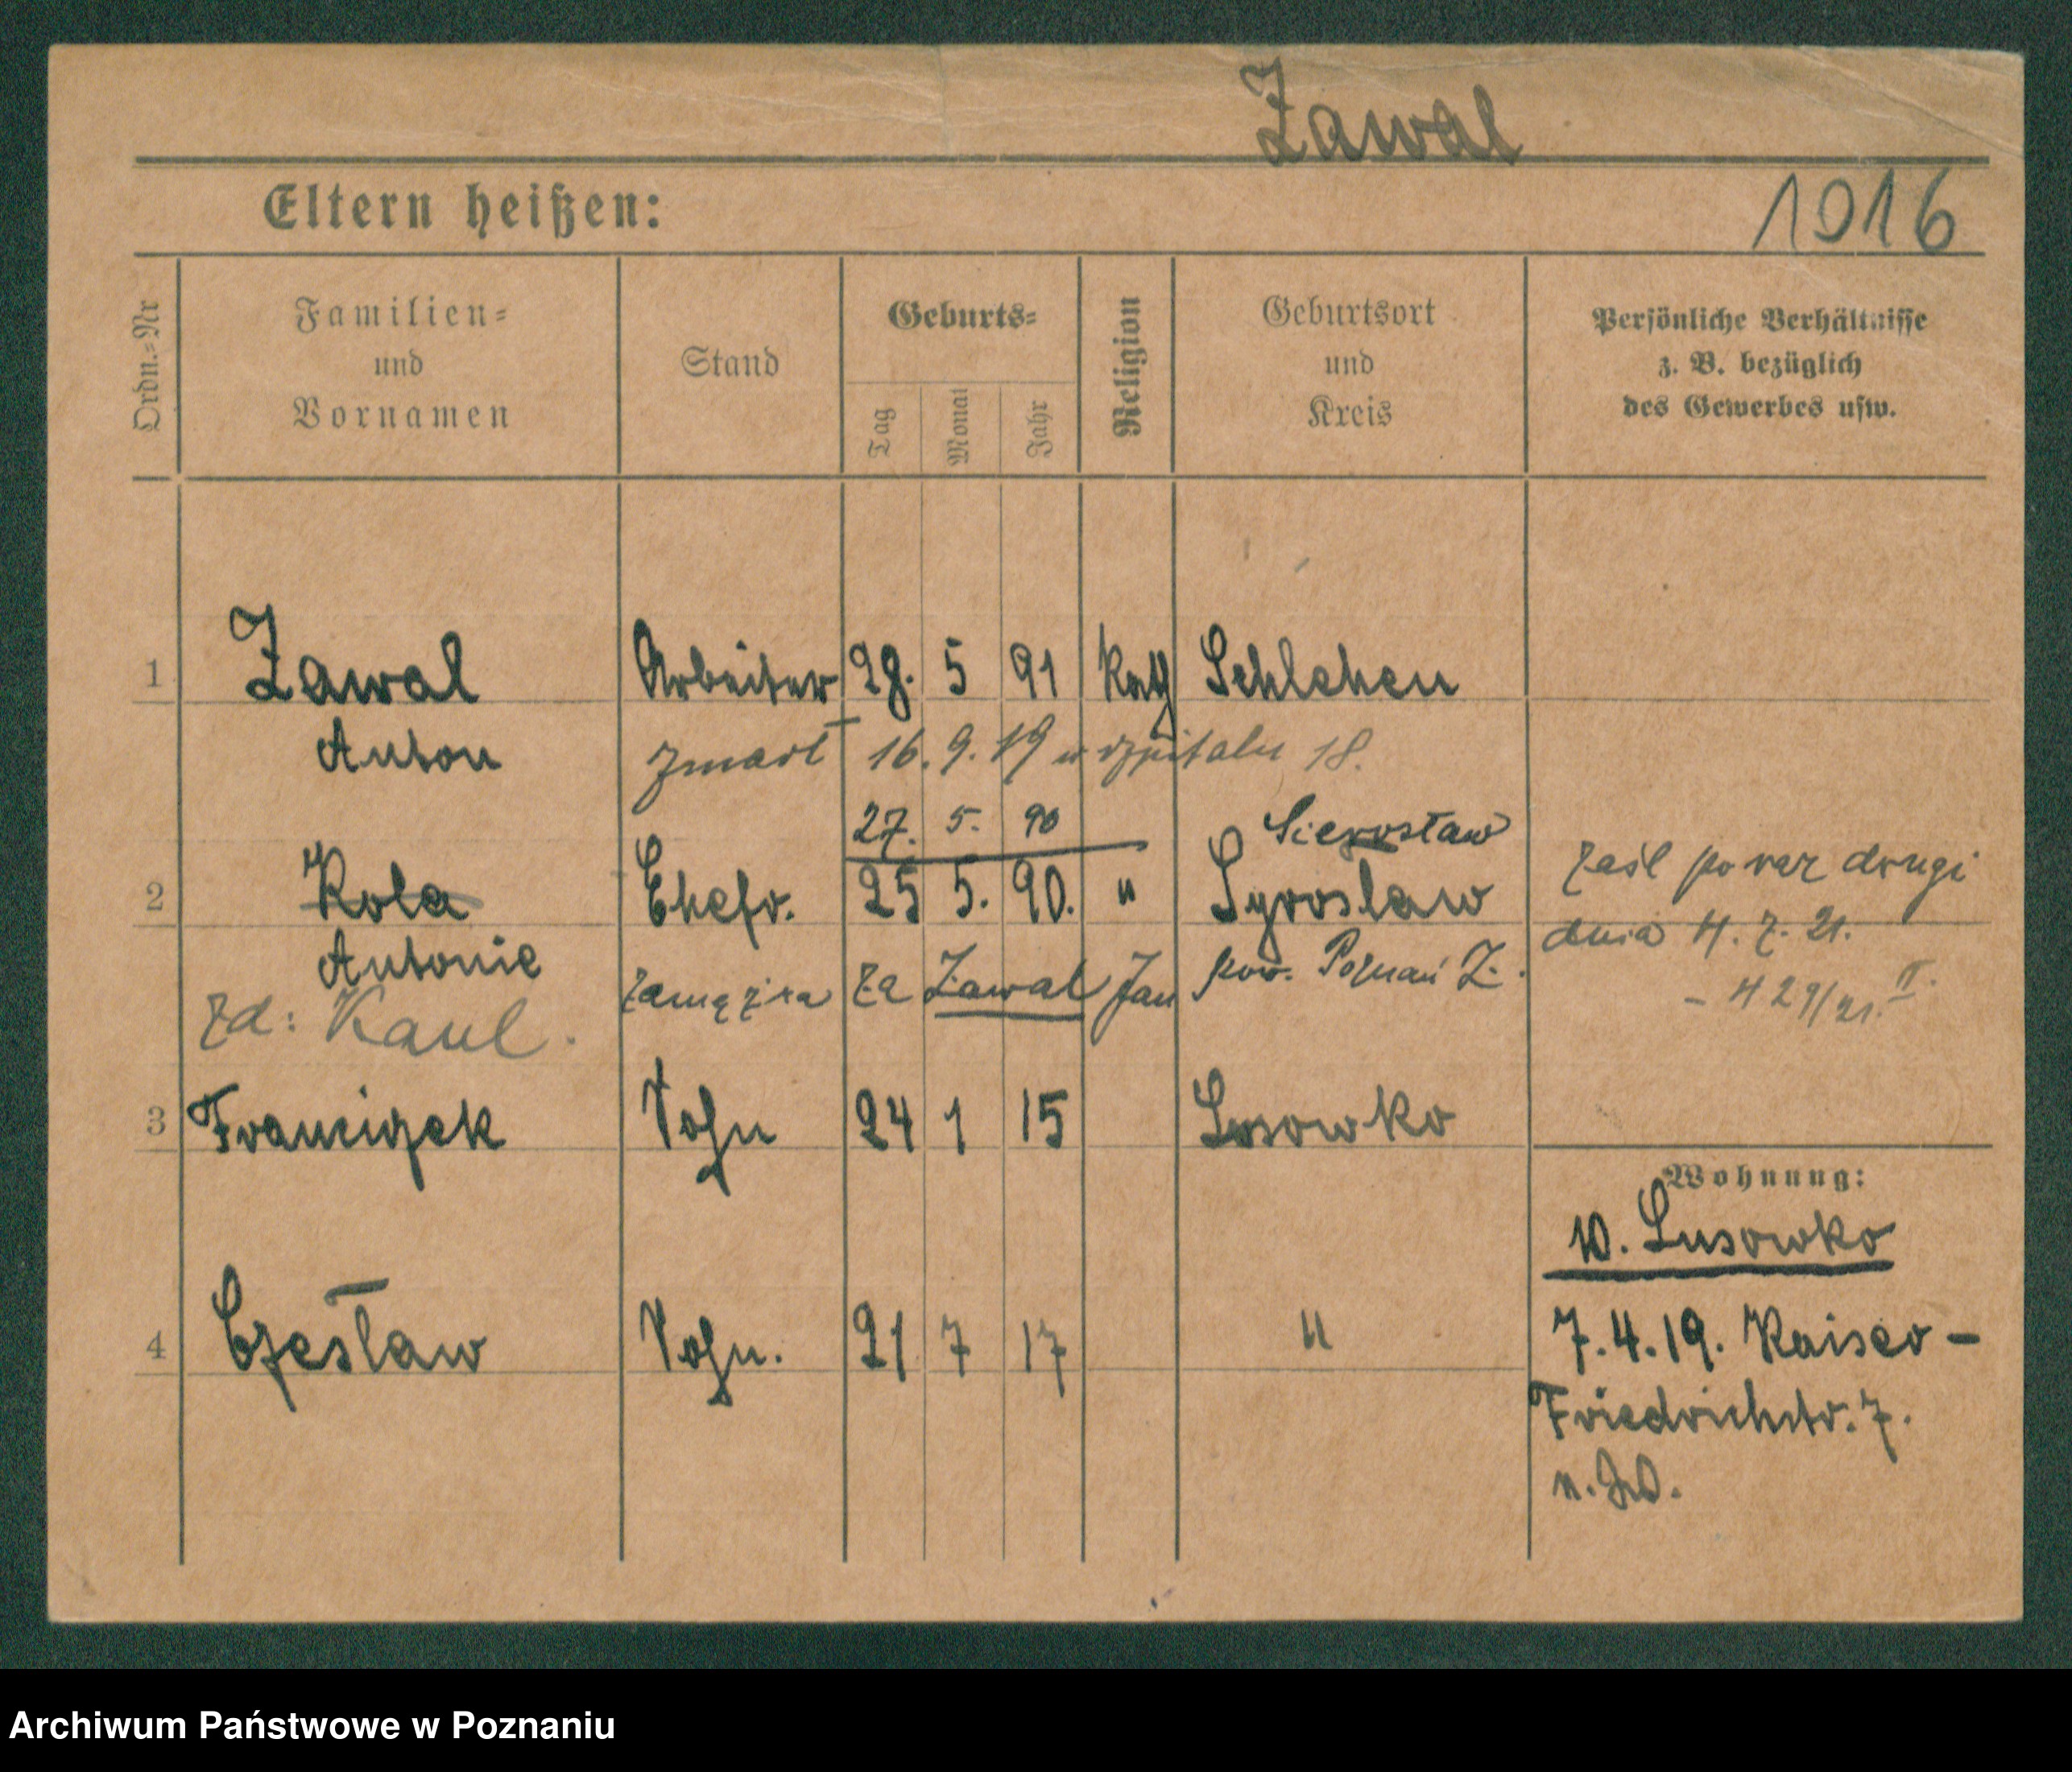 Zawal
Eltern heißen:
1016
Ordn.=Nr
Familien=
und
Vornamen
Stand
Geburts=
Tag
Monat
Jahr
Religion
Geburtsort
und
Kreis
Persönliche Verhältnisse
z. B. bezüglich
des Gewerbes usw.
1 Zawal Arbeiter 28. 5 91 Kath Schlehen
Anton zmarł 16. 9. 19 w szpitalu 18.
27. 5. 90 Sierosław
2 Kola Ehefr. 25 5. 90. " Syroslaw
zaśl po raz drugi
dnia 4. 7. 21.
Antonie zamężna za Zawal Jan pow. Poznań Z.
zd: Kaul.
- H 29/21. II.
3 Franciszek Sohn 24 1 15 Lusowko
Wohnung:
10. Lusowko
4 Czesław Sohn. 21 7 17 "
7. 4. 19. Kaiser-
Friedrichstr. 7.
Archiwum Państwowe w Poznaniu